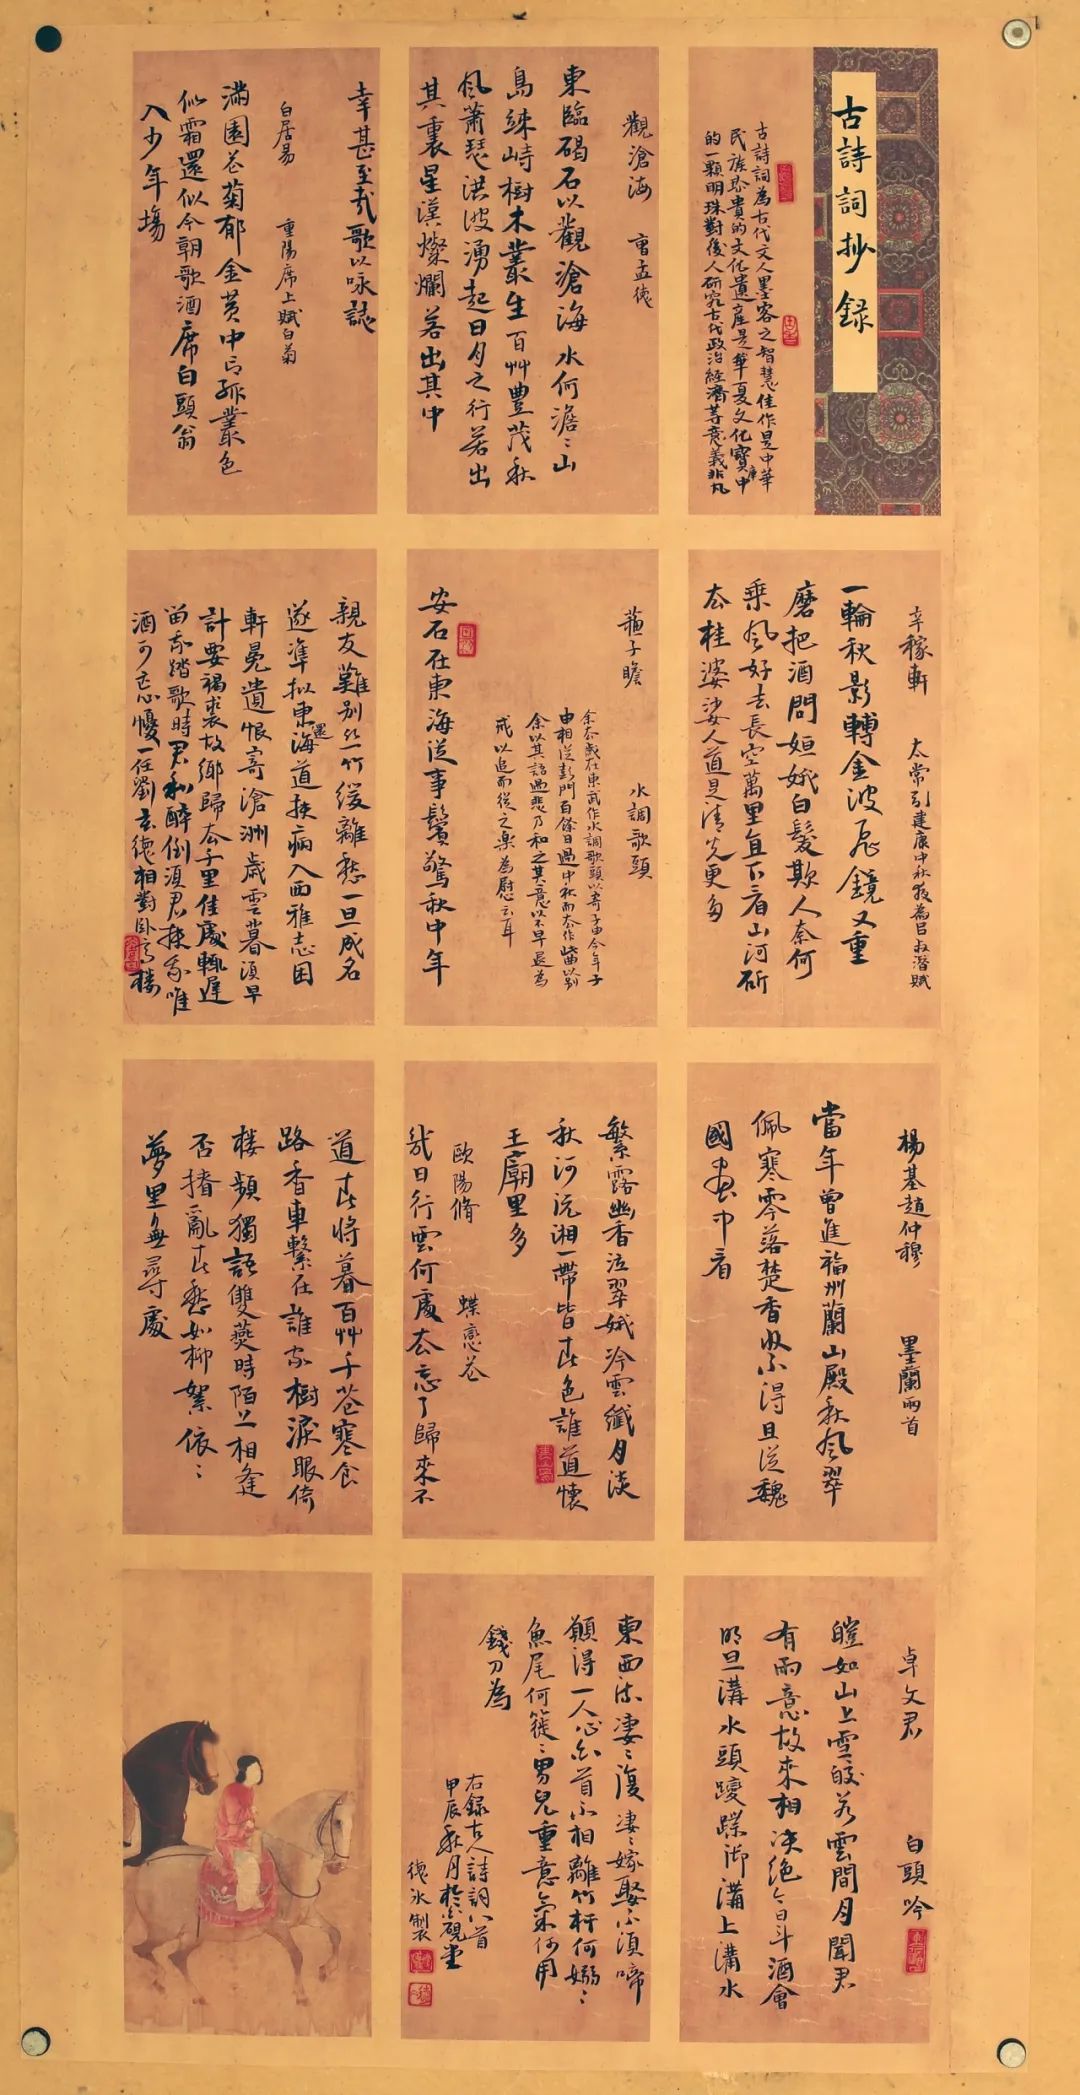 古詩詞抄錄
古詩詞為古代文人墨客之智慧佳作是中華
民族珍貴的文化遺產是華夏文化寶庫中
的一顆明珠對後人研究古代政治經濟等意義非凡
觀滄海 曹孟德
東臨碣石以觀滄海水何澹〻山
島竦峙樹木叢生百艸豐茂秋
風蕭瑟洪波湧起日月之行若出
其中星漢燦爛若出其裏
幸甚至哉歌以咏誌
白居易 重陽席上賦白菊
滿園花菊郁金黃中有孤叢色
似霜還似今朝歌酒席白頭翁
入少年場
辛稼軒 太常引建康中秋夜為呂叔潛賦
一輪秋影轉金波飛鏡又重
磨把酒問姮娥白髮欺人奈何
乘風好去長空萬里直下看山河斫
去桂婆娑人道是清光更多
蘇子瞻 水調歌頭
余去歲在東武作水調歌頭以寄子由今年子
由相從彭門百餘日過中秋而去作此曲以別
余以其語過悲乃和之其意以不早退為
戒以退而從之樂為慰云耳
安石在東海從事鬢驚秋中年
親友難別絲竹緩離愁一旦成名
遂準擬東還海道扶病入西雅志困
軒冕遺恨寄滄洲歲雲暮須早
計要褐裘故鄉歸去千里佳處輒遲
留我踏歌時君和醉倒須君扶我唯
酒可忘憂一任劉玄德相對臥高樓
楊基趙仲穆 墨蘭兩首
當年曾進福州蘭山殿秋風翠
佩寒零落楚香收不得且從魏
國畫中看
繁露幽香泣翠娥冷雲纖月淡
秋河沅湘一帶皆春色誰道懷
王廟里多
歐陽脩 蝶戀花
幾日行雲何處去忘了歸來不
道春將暮百艸千花寒食
路香車繫在誰家樹淚眼倚
樓頻獨語雙燕時陌上相逢
否撩亂春愁如柳絮依〻
夢里無尋處
卓文君 白頭吟
皚如山上雪皎若雲間月聞君
有兩意故來相決絕今日斗酒會
明旦溝水頭躞蹀御溝上溝水
東西流淒〻復淒〻嫁娶不須啼
願得一人心白首不相離竹杆何嫋〻
魚尾何簁〻男兒重意氣何用
錢刀為
右錄古人詩詞八首
甲辰秋月於硯堂
德冰製